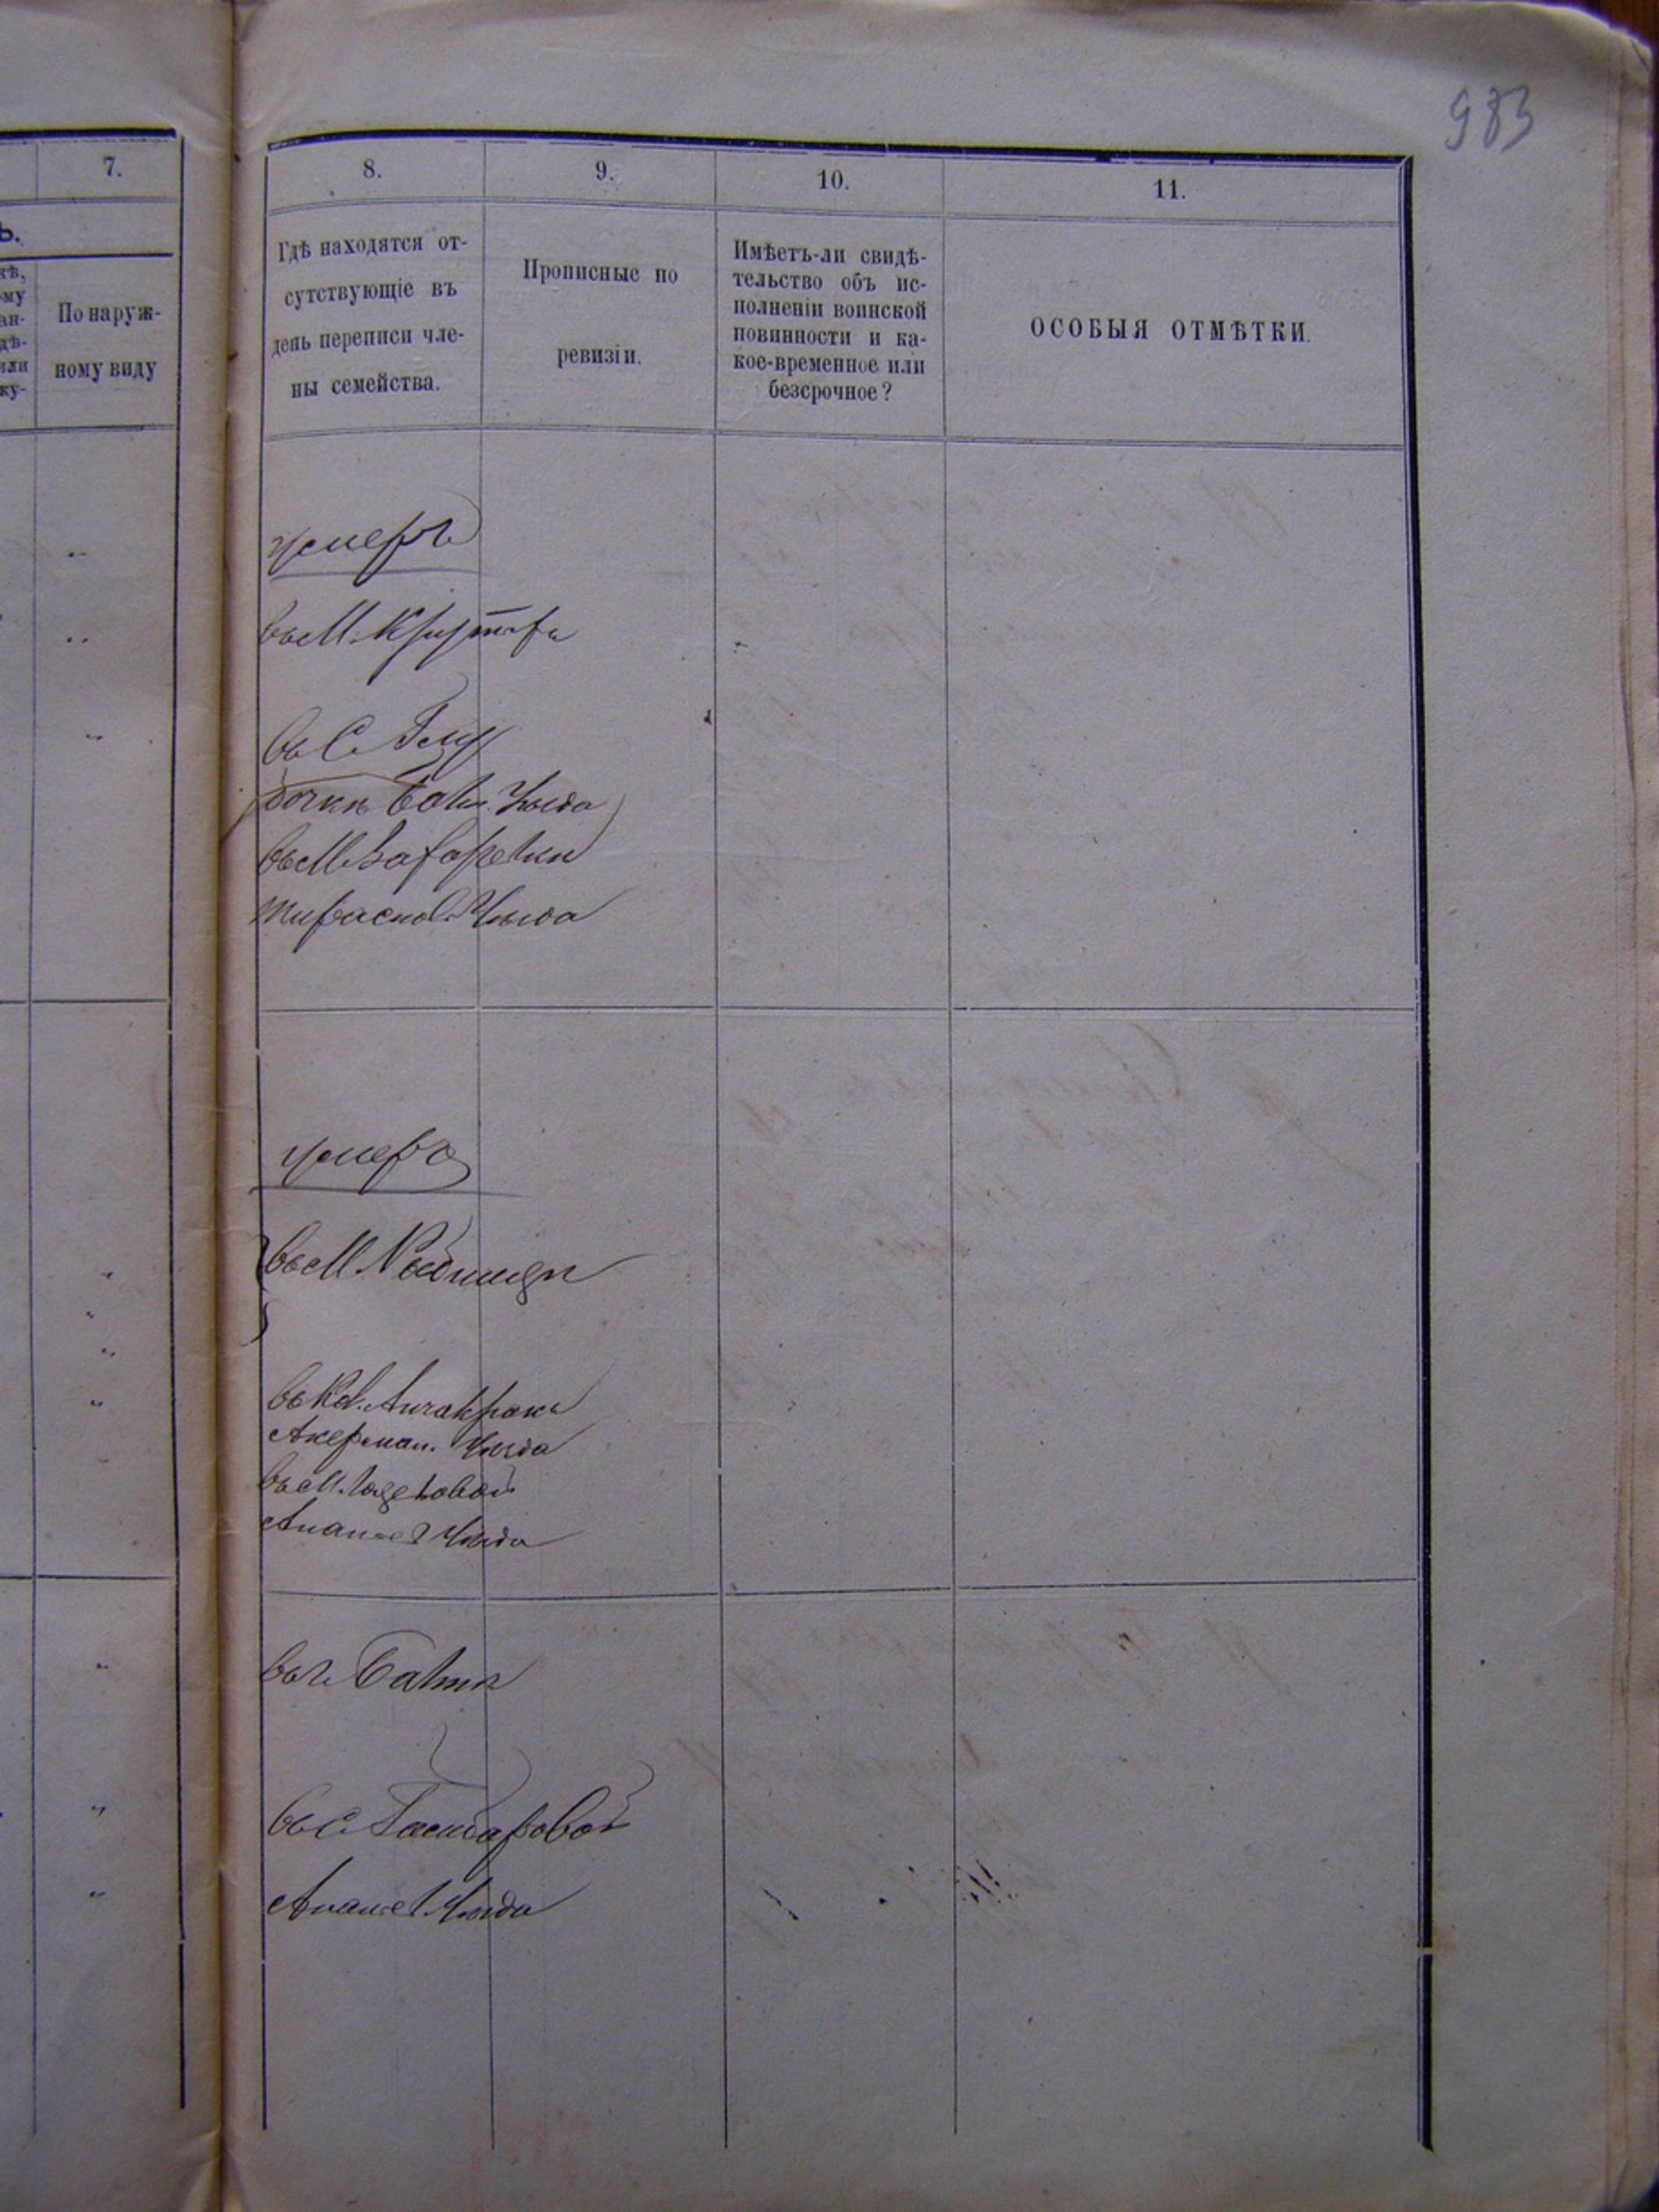 983
7.
По наруж-
ному виду
8.
9.
10.
11.
Гдѣ находятся от-
сутствующіе въ
день переписи чле-
ны семейства.
Прописные по
ревизіи.
Имѣетъ-ли свидѣ-
тельство объ ис-
полненіи воинской
повинности и ка-
кое-временное или
безсрочное?
ОСОБЫЯ ОТМѢТКИ.
умеръ
въ М.
въ С.
Балт. Уѣзда
въ М. Захарьевки
Тираспол. Уѣзда
умеръ
въ М. Рыбницѣ
въ Кол.
Акерман. Уѣзда
въ М.
Ананьев Уѣзда
въ г. Балтѣ
въ С.
Ананьев. Уѣзда